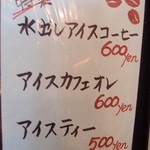 水出しアイスコーヒー
600yen
アイスカフェオレ
600yen
アイスティー
500yen